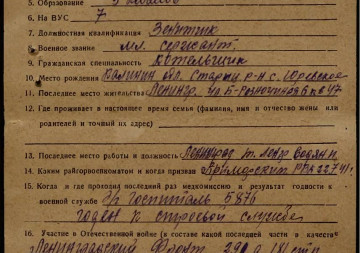 5. Образование 5 классов
6. На ВУС 7
7. Должностная квалификация Зенитчик
8. Военное звание мл. сержант
9. Гражданская специальность Котельщик
10. Место рождения Калинин. обл. Старицк. р-н с.
11. Последнее место жительства Ленингр.
12. Где проживает в настоящее время семья (фамилия, имя и отчество жены или
родителей и точный их адрес)
13. Последнее место работы и должность
14. Каким райгорвоенкоматом и когда призван Приморский РВК 22.7.41 г.
15. Когда и где проходил последний раз медкомиссию и результат годности к
военной службе Госпиталь 5876
годен к строевой службе
16. Участие в Отечественной войне (в составе какой последней части и в качестве
Ленинградский Фронт 290